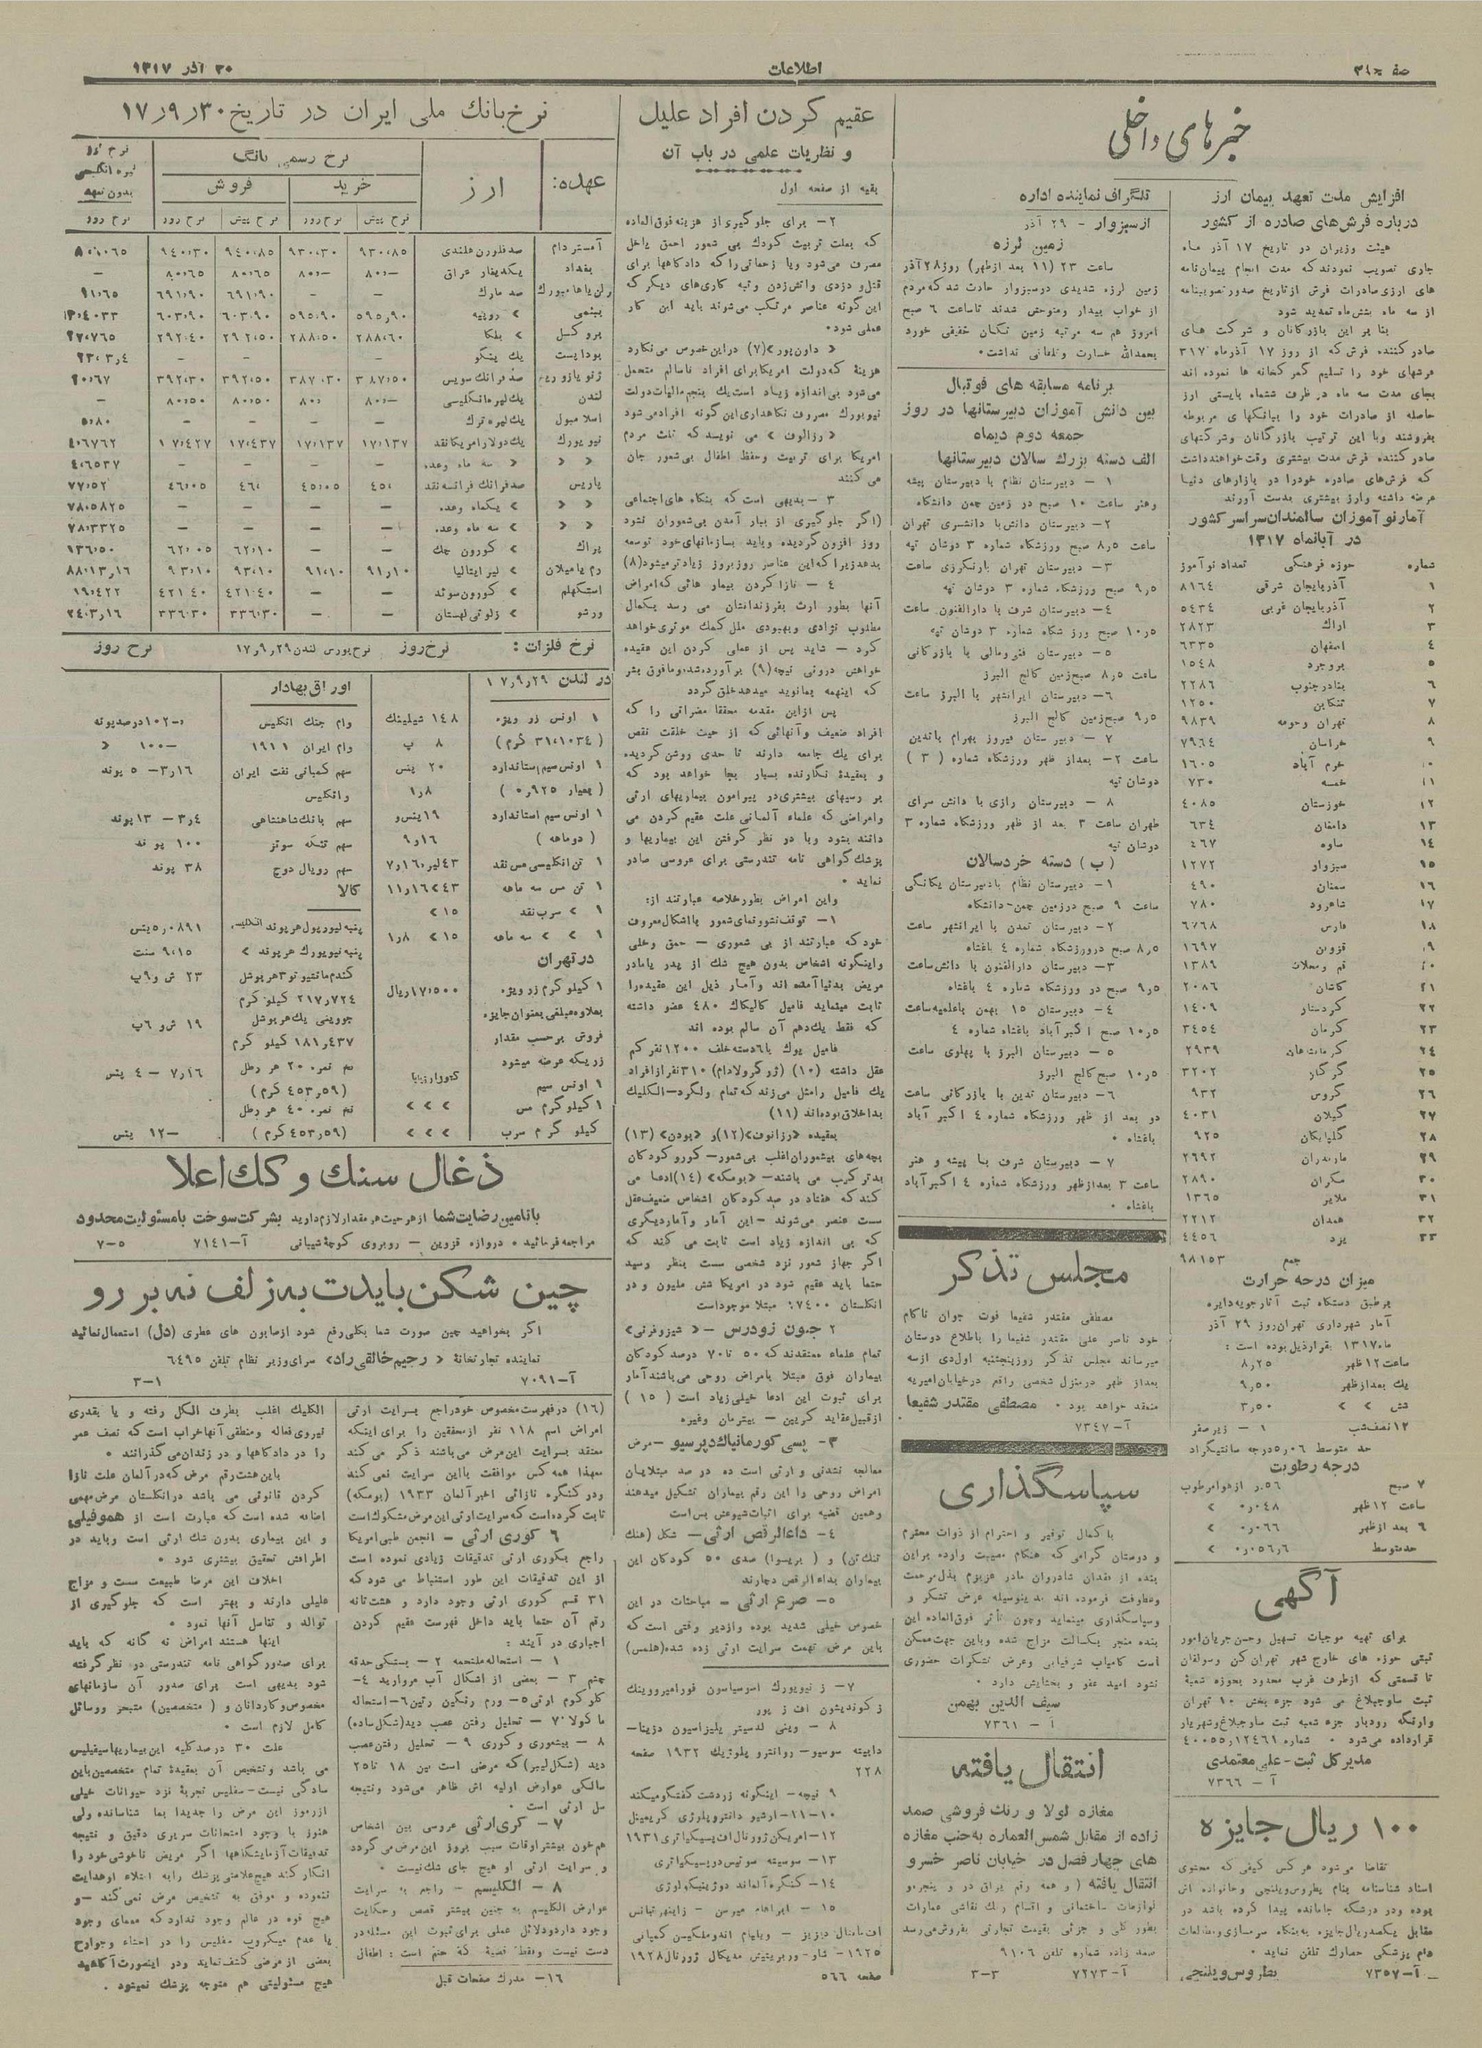 اطلاعات
۳۰ آذر ۱۳۱۷
خبرهای داخلی
افزایش مدت تعهد پیمان ارز
درباره فرش‌های صادره از کشور
هیئت وزیران در تاریخ ۱۷ آذر ماه
جاری تصویب نمودند که مدت انجام پیمان‌نامه
های ارزی صادرات فرش از تاریخ صدور تصویبنامه
از سه ماه بشش‌ماه تمدید شود
بنا بر این بازرگانان و شرکت های
صادر کننده فرش که از روز ۱۷ آذرماه ۳۱۷
فرشهای خود را تسلیم گمرکخانه ها نموده اند
بجای مدت سه ماه در ظرف ششماه بایستی ارز
حاصله از صادرات خود را ببانکهای مربوطه
بفروشند وبا این ترتیب بازرگانان وشرکتهای
صادر کننده فرش مدت بیشتری وقت خواهند داشت
که فرش‌های صادره خود را در بازارهای دنیا
عرضه داشته وارز بیشتری بدست آورند
آمار نوآموزان سالمندان سراسر کشور
در آبانماه ۱۳۱۷
شماره حوزه فرهنگی تعداد نوآموز
۱ آذربایجان شرقی ۸۱۶۴
۲ آذربایجان غربی ۵۴۳۴
۳ اراك ۲۸۲۳
۴ اصفهان ۶۳۳۵
۵ بروجرد ۱۵۴۸
۶ بنادر جنوب ۲۲۸۶
۷ تنکابن ۱۲۵۰
۸ تهران وحومه ۹۸۳۹
۹ خراسان ۷۹۶۴
۱۰ خرم آباد ۱۶۰۵
۱۱ خمسه ۷۳۰
۱۲ خوزستان ۴۰۸۵
۱۳ دامغان ۶۳۴
۱۴ ساوه ۴۶۷
۱۵ سبزوار ۱۲۷۲
۱۶ سمنان ۴۹۰
۱۷ شاهرود ۷۸۰
۱۸ فارس ۶۷۶۸
۱۹ قزوین ۱۶۹۷
۲۰ قم ومحلات ۱۳۸۹
۲۱ کاشان ۲۰۸۶
۲۲ کردستان ۱۴۰۹
۲۳ کرمان ۳۴۵۴
۲۴ کرمانشاهان ۲۹۳۹
۲۵ گرگان ۳۲۰۲
۲۶ گروس ۹۳۲
۲۷ گیلان ۴۰۳۱
۲۸ گلپایگان ۹۲۵
۲۹ مازندران ۲۶۹۲
۳۰ مکران ۲۸۹۰
۳۱ ملایر ۱۳۶۵
۳۲ همدان ۲۲۱۲
۳۳ یزد ۴۴۵۶
جمع ۹۸۱۵۳
میزان درجه حرارت
برطبق دستگاه ثبت آثار جویه دایره
آمار شهرداری تهران روز ۲۹ آذر
ماه ۱۳۱۷ بقرار ذیل بوده است :
ساعت ۱۲ ظهر ۸٫۲۵
یك بعداز ظهر ۹٫۵۰
شش » » ۳٫۵۰
۱۲ نصف شب ۱ – زیر صفر
حد متوسط ۵٫۰۶ درجه سانتیگراد
درجه رطوبت
آگهی
برای تهیه موجبات تسهیل وحسن جریان امور
ثبتی حوزه های خارج شهر تهران کن وسولقان
تا قسمتی که از طرف غرب محدود بحوزه شعبهٔ
ثبت ساوجبلاغ می شود جزء بخش ۱۰ تهران
وارنگه رودبار جزء شعبه ثبت ساوجبلاغ وشهریار
قرارداده می‌شود . شماره ۴۰۰۵۵ر۱۲۴۶۱
مدیر کل ثبت – علی معتمدی
آ – ۷۳۶۶
۱۰۰ ریال جایزه
تقاضا می‌شود هر کس کیفی که محتوی
اسناد شناسنامه بنام پطروس ویلنچی وخانواده اش
بوده ودر درشکه جامانده پیدا کرده باشد در
آ–۷۳۵۷ پطروس ویلنچی
تلگراف نماینده اداره
از سبزوار – ۲۹ آذر
زمین لرزه
ساعت ۲۳ (۱۱ بعد از ظهر) روز ۲۸ آذر
زمین لرزه شدیدی در سبزوار حادث شد که مردم
از خواب بیدار ومتوحش شدند تا ساعت ۶ صبح
امروز هم سه مرتبه زمین تکان خفیفی خورد
بحمدالله خسارت وتلفاتی نداشت .
برنامه مسابقه های فوتبال
بین دانش آموزان دبیرستانها در روز
جمعه دوم دیماه
الف دسته بزرك سالان دبیرستانها
۱ – دبیرستان نظام با دبیرستان پیشه
وهنر ساعت ۱۰ صبح در زمین چمن دانشگاه
۲– دبیرستان دانش با دانشسرای تهران
ساعت ۸٫۵ صبح ورزشگاه شماره ۳ دوشان تپه
۳– دبیرستان تهران بازرگنرزی ساعت
۹٫۵ صبح ورزشگاه شماره ۳ دوشان تپه
۴– دبیرستان شرف با دارالفنون ساعت
۱۰٫۵ صبح ورز شگاه شماره ۳ دوشان تپه
۵– دبیرستان فنی ومالی با بازرگانی
ساعت ۸٫۵ صبح زمین کالج البرز
۶– دبیرستان ایرانشهر با البرز ساعت
۹٫۵ صبح زمین کالج البرز
۷ – دبیرستان فیروز بهرام با تدین
ساعت ۲– بعداز ظهر ورزشگاه شماره ( ۳ )
دوشان تپه
۸ – دبیرستان رازی با دانش سرای
طهران ساعت ۳ بعد از ظهر ورزشگاه شماره ۳
دوشان تپه
(ب) دسته خردسالان
۱– دبیرستان نظام با دبیرستان یگانگی
ساعت ۹ صبح در زمین چمن–دانشگاه
۲– دبیرستان تمدن با ایرانشهر ساعت
۸٫۵ صبح در ورزشگاه شماره ۴ باغشاه
۳– دبیرستان دارالفنون با دانش ساعت
۹٫۵ صبح در ورزشگاه شماره ۴ باغشاه
۴– دبیرستان ۱۵ بهمن باعلمیه ساعت
۱۰٫۵ صبح اکبر آباد باغشاه شماره ۴
۵ – دبیرستان البرز با پهلوی ساعت
۱۰٫۵ صبح کالج البرز
۶– دبیرستان تدین با بازرگانی ساعت
دو بعد از ظهر ورزشگاه شماره ۴ اکبر آباد
باغشاه .
۷ – دبیرستان شرف با پیشه و هنر
ساعت ۳ بعدازظهر ورزشگاه شماره ۴ اکبرآباد
باغشاه .
مجلس تذکر
مصطفی مقتدر شفیعا فوت جوان ناکام
خود ناصر علی مقتدر شفیعا را باطلاع دوستان
میرساند مجلس تذکر روز پنجشنبه اول دی از سه
بعداز ظهر در منزل شخصی واقع در خیابان امیریه
منعقد خواهد بود . مصطفی مقتدر شفیعا
آ–۷۳۴۷
سپاسگذاری
با کمال توقیر و احترام از ذوات محترم
و دوستان گرامی که هنگام مصیبت وارده براین
بنده از فقدان شادروان مادر عزیزم بذل مرحمت
وعطوفت فرموده اند بدینوسیله عرض تشکر و
وسپاسگذاری مینماید وچون تأثر فوق‌العاده این
بنده منجر بکسالت مزاج شده وباین جهت ممکن
است کامیاب شرفیابی وعرض تشکرات حضوری
نشود امید عفو و بخشایش دارد .
سیف الدین بهمن
آ – ۷۳۶۱
انتقال یافته
مغازه لولا و رنك فروشی صمد
زاده از مقابل شمس‌العماره به‌جنب مغازه
های چهار فصل در خیابان ناصر خسرو
انتقال یافته ( و همه رقم یراق در و پنجره و
لوازمات ساختمانی و اقسام رنك نقاشی عمارات
بطور کلی و جزئی بقیمت تجارتی بفروش می‌رسد
صمد زاده شماره تلفن ۹۱۰۶
آ–۷۲۷۳ ۳–۳
عقیم کردن افراد علیل
و نظریات علمی در باب آن
بقیه از صفحه اول
۲– برای جلو گیری از هزینه فوق العاده
که بعلت تربیت کودك بی شعور احمق یاخل
مصرف می‌شود ویا زحماتی را که دادگاهها برای
قتل و دزدی و آتش زدن وبقیه کاری‌های دیگر که
این گونه عناصر مرتکب می‌شوند باید این کار
عملی شود.
« داون‌پور»(۷) در این خصوص می‌نگارد
هزینهٔ که دولت امریکا برای افراد ناسالم متحمل
می‌شود بی‌اندازه زیاد است یك پنجم مالیات دولت
نیویورك مصروف نگاهداری این گونه افراد می‌شود
« رزالون » می نویسد که ثلث مردم
امریکا برای تربیت وحفظ اطفال بی‌شعور جان
می کنند
۳ – بدیهی است که بنگاه های اجتماعی
(اگر جلو گیری از ببار آمدن بی‌شعوران نشود
روز افزون گردیده وباید بسازمانهای خود توسعه
بدهد زیرا که این عناصر روز بروز زیادتر میشود(۸)
۴ – نازا کردن بیمار هائی که امراض
آنها بطور ارث بفرزندانشان می رسد بکمال
مطلوب نژادی وبهبودی ملل کمك موثری خواهد
کرد – شاید پس از عملی کردن این عقیده
خواهش درونی نیچه (۹) برآورده شده ومافوق بشر
که اینهمه بما نوید میدهد خلق گردد
پس از این مقدمه محققا مضراتی را که
افراد ضعیف و آنهائی که از حیث خلقت نقص
برای یك جامعه دارند تا حدی روشن گردیده
و بعقیدهٔ نگارنده بسیار بجا خواهد بود که
بر رسیهای بیشتری در پیرامون بیماریهای ارثی
وامراضی که علماء آلمانی علت عقیم کردن می
دانند بشود وبا در نظر گرفتن این بیماریها و
پزشك گواهی نامه تندرستی برای عروسی صادر
نماید .
واین امراض بطور خلاصه عبارتند از:
۱– توقف نشوونمای شعور با اشکال معروف
خود که عبارتند از بی شعوری – حمق وخلی
واینگونه اشخاص بدون هیچ شك از پدر یا مادر
مریض بدنیا آمده اند وآمار ذیل این عقیده را
ثابت مینماید فامیل کالیکاك ۴۸۰ عضو داشته
که فقط یك‌دهم آن سالم بوده اند
فامیل یوك با ۶ دسته خلف ۱۲۰۰ نفر کم
عقل داشته (۱۰) (ژر گرولادام) ۳۱۰ نفر از افراد
یك فامیل را مثل می‌زند که تمام ولگرد–الکلیك
بداخلاق بوده‌اند (۱۱)
بعقیده «رزانوت»(۱۲)و «بودن» (۱۳)
بچه‌های بیشعوران اغلب بی‌شعور– کورو کودکان
بدتر کیب می باشند– «بومکه» (۱۴)ادعا می
کند که هفتاد در صد کودکان اشخاص ضعیف عقل
سست عنصر می‌شوند – این آمار و آمار دیگری
که بی اندازه زیاد است ثابت می کند که
اگر جهاز شعور نزد شخصی سست بنظر رسید
حتما باید عقیم شود در امریکا شش ملیون و در
انگلستان ۷۴۰۰: مبتلا موجود است
۲ جنون زودرس – «شیزوفرنی»
تمام علماء معتقدند که ۵۰ تا ۷۰ درصد کودکان
بیماران فوق مبتلا بامراض روحی می‌باشند آمار
برای ثبوت این ادعا خیلی زیاد است ( ۱۵ )
از قبیل عقاید کریین – بیترمان وغیره
۳– پسی کورمانیاك دپرسیو – مرض
معالجه نشدنی و ارثی است ده در صد مبتلایان
امراض روحی را این رقم بیماران تشکیل میدهند
وهمین قضیه برای اثبات شیوعش بس است
۴– داءالرقص ارثی – شکل (هنك
تنك تن) و ( بریسوا) صدی ۵۰ کودکان این
بیماران بداء الرقص دچارند
۵– صرع ارثی – مباحثات در این
خصوص خیلی شدید بوده واز دیر وقتی است که
باین مرض تهمت سرایت ارثی زده شده (هلمس)
۹ نیچه – اینگونه زردشت گفتگو میکند
۱۰–۱۱– ارشیو دانتروپلوژی کریمینل
۱۲–امریکن ژورنال اف پسیکیاتری ۱۹۳۱
۱۳– سوسیته سوئیس دو پسیکیاتری
۱۴– کنگره آلماند دوژینیکولوژی
صفحه ۵۶۶
نرخ بانك ملی ایران در تاریخ ۱۷٫۹٫۳۰
عهده: ارز نرخ رسمی بانك
خرید فروش
نرخ پیش نرخ روز نرخ پیش نرخ روز نرخ روز
آمستردام صد فلورن هلندی ۹۳۰٫۸۵ ۹۳۰٫۳۰ ۹۴۰٫۸۵ ۹۴۰٫۳۰
بغداد یکدینار عراق ۸۰٫– ۸۰٫– ۸۰٫۶۵ ۸۰٫۶۵ –
صد مارك – – ۶۹۱٫۹۰ ۶۹۱٫۹۰
بمبئی » روپیه ۵۹۵٫۹۰ ۵۹۵٫۹۰ ۶۰۳٫۹۰ ۶۰۳٫۹۰
بروکسل » بلگا ۲۸۸٫۶۰ ۲۸۸٫۵۰ ۲۹۲٫۵۰ ۲۹۲٫۴۰
بوداپست یك پنگو – – – –
صد فرانك سویس ۳۸۷٫۵۰ ۳۸۷٫۳۰ ۳۹۲٫۵۰ ۳۹۲٫۳۰
لندن یك لیره انگلیسی ۸۰٫– ۸۰٫ ۸۰٫۵۰ ۸۰٫۵۰ –
اسلامبول یك لیره ترك
نیویورك یك دولار امریکا نقد ۱۷٫۱۳۷ ۱۷٫۱۳۷ ۱۷٫۴۳۷ ۱۷٫۴۲۷
« « « سه ماه وعده – – – –
پاریس صد فرانك فرانسه نقد ۴۵٫ ۴۵٫۰۵ ۴۶٫ ۴۶٫۰۵ ۷۷٫۵۲
« « « یکماه وعده – – – –
« « « سه ماه وعده – – – –
پراك » کورون چك – – ۶۲٫۱۰ ۶۲٫۰۵
رم یا میلان » لیر ایتالیا ۹۱٫۱۰ ۹۱٫۱۰ ۹۳٫۱۰ ۹۳٫۱۰
استکهلم » کورون سوئد – – ۴۲۱٫۴۰ ۴۲۱٫۴۰
ورشو » زلوتی لهستان – – ۳۳۶٫۳۰ ۳۳۶٫۳۰
نرخ فلزات : نرخ روز نرخ بورس لندن ۱۷٫۹٫۲۹ نرخ روز
در لندن ۱۷٫۹٫۲۹
۱ اونس زر ویژه ۱۴۸ شیلینك
(۳۱٫۱۰۳۴ گرم) ۸ پ
۱ اونس سیم استاندارد ۲۰ پنس
( بعیار ۰٫۹۲۵ ) ۱٫۸
۱ اونس سیم استاندارد ۱۹ پنس و
( دوماهه ) ۹٫۱۶
۱ تن انگلیسی مس نقد
۱ تن مس سه ماهه
۱ » سرب نقد
۱ » » سه ماهه
در تهران
۱ کیلو گرم زر ویژه ۱۷٫۵۰۰ ریال
بعلاوه مبلغی بعنوان جایزه
فروش برحسب مقدار
زریکه عرضه میشود
۱ اونس سیم
۱ کیلو گرم مس » » »
کیلو گرم سرب » » »
اوراق بهادار
وام جنك انگلیس
وام ایران ۱۹۱۱
سهم کمپانی نفت ایران
وانگلیس
سهم بانك شاهنشاهی
سهم تنگه سوئز ۱۰۰ پوند
سهم رویال دوچ ۳۸ پوند
کالا
پنبه لیورپول هر پوند انگلیس ۵٫۰۸۹۱ پنس
پنبه نیویورك هر پوند » ۹٫۱۵ سنت
گندم مانتیوتو ۳ هر بوشل ۲۳ ش و ۹ پ
۲۱۷٫۷۲۴ کیلو گرم
جو وینی پك هر بوشل ۱۹ ش و ۶ پ
۱۸۱٫۴۳۷ کیلو گرم
(۴۵۳٫۵۹ گرم)
(۴۵۳٫۵۹ گرم) ۱۲– پنس
ذغال سنك و كك اعلا
با تامین رضایت شما از هر حیث هر مقدار لازم دارید بشرکت سوخت با مسئولیت محدود
مراجعه فرمائید . دروازه قزوین – روبروی کوچهٔ شیبانی آ–۷۱۴۱ ۷–۵
چین شکن بایدت به‌زلف نه بر رو
اگر بخواهید چین صورت شما بکلی رفع شود از صابون های عطری (دل) استعمال نمائید
نماینده تجارتخانهٔ «رحیم خالقی راد» سرای وزیر نظام تلفن ۶۴۹۵
آ–۷۰۹۱ ۳–۱
(۱۶) در فهرست مخصوص خود راجع بسرایت ارثی
امراض اسم ۱۱۸ نفر از محققین را برای اینکه
معتقد بسرایت این مرض می‌باشند ذکر می کند
معهذا همه کس موافقت با این سرایت نمی کند
ودر کنگره نازائی اخیر آلمان ۱۹۳۳ (بومکه)
ثابت کرده است که سرایت ارثی این مرض مشکوك است
۶ کوری ارثی – انجمن طبی امریکا
راجع بکوری ارثی تدقیقات زیادی نموده است
از این تدقیقات این طور استنباط می شود که
۳۱ قسم کوری ارثی وجود دارد و هشت تای
رقم آن حتما باید داخل فهرست عقیم کردن
اجباری در آیند :
۱ – استحاله ملتحمه ۲ – بستگی حدقه
چشم ۳ – بعضی از اشکال آب مروارید ۴–
کلو کوم ارثی ۵– ورم رنگین رتین ۶–استحاله
ماکولا ۷– تحلیل رفتن عصب دید(شکل ساده)
۸ – بیشعوری و کوری ۹ – تحلیل رفتن عصب
دید (شکل لیبر) که مرضی است بین ۱۸ تا ۲۵
سالگی عوارض اولیه اش ظاهر می‌شود ونتیجه
سل ارثی است .
۷– کری ارثی عروسی بین اشخاص
هم‌خون بیشتر اوقات سبب بروز این مرض می‌گردد
و سرایت ارثی او هیچ جای شك نیست .
۸ – الکلیسم – راجع به سرایت
عوارض الکلیم به جنین بیشتر قصص وحکایت
وجود دارد ودلائل عملی برای ثبوت این مسئله در
دست نیست وفقط قضیهٔ که حتم است : اطفال
۱۶– مدرك صفحات قبل
الکلیك اغلب بطرف الکل رفته و یا بقدری
نیروی فعاله ومنطقی آنها خراب است که نصف عمر
را در دادگاهها و در زندان می‌گذرانند .
باین هشت رقم مرض که در آلمان علت نازا
کردن قانونی می باشد در انگلستان مرض مهمی
اضافه شده است که عبارت است از هموفیلی
و این بیماری بدون شك ارثی است وباید در
اطرافش تحقیق بیشتری شود .
اخلاف این مرضا طبیعت سست و مزاج
علیلی دارند و بهتر است که جلوگیری از
توالد و تناسل آنها نمود .
اینها هستند امراض نه گانه که باید
برای صدور گواهی نامه تندرستی در نظر گرفته
شود بدیهی است برای صدور آن سازمانهای
مخصوص وکاردانان و (متخصصین) متبحر ووسائل
کامل لازم است .
علت ۳۰ درصد کلیه این بیماریها سیفیلیس
می باشد وتشخیص آن بعقیدهٔ تمام متخصصین باین
سادگی نیست– سفلیس تجربهٔ نزد حیوانات خیلی
از رموز این مرض را جدیدا بما شناسانده ولی
هنوز با وجود امتحانات سریری دقیق و نتیجه
تدقیقات آزمایشگاهها اگر مریض ناخوشی خود را
انکار کند هیچ علامتی پزشك را به ابتلاء او هدایت
ننموده و موفق به تشخیص مرض نمی کند – و
هیچ قوه در عالم وجود ندارد که معمای وجود
یا عدم میکروب سفلیس را در احشاء وجوارح
بعضی از مرضی کشف نماید ودر اینصورت آگاهید
هیچ مسئولیتی هم متوجه پزشك نمیشود .